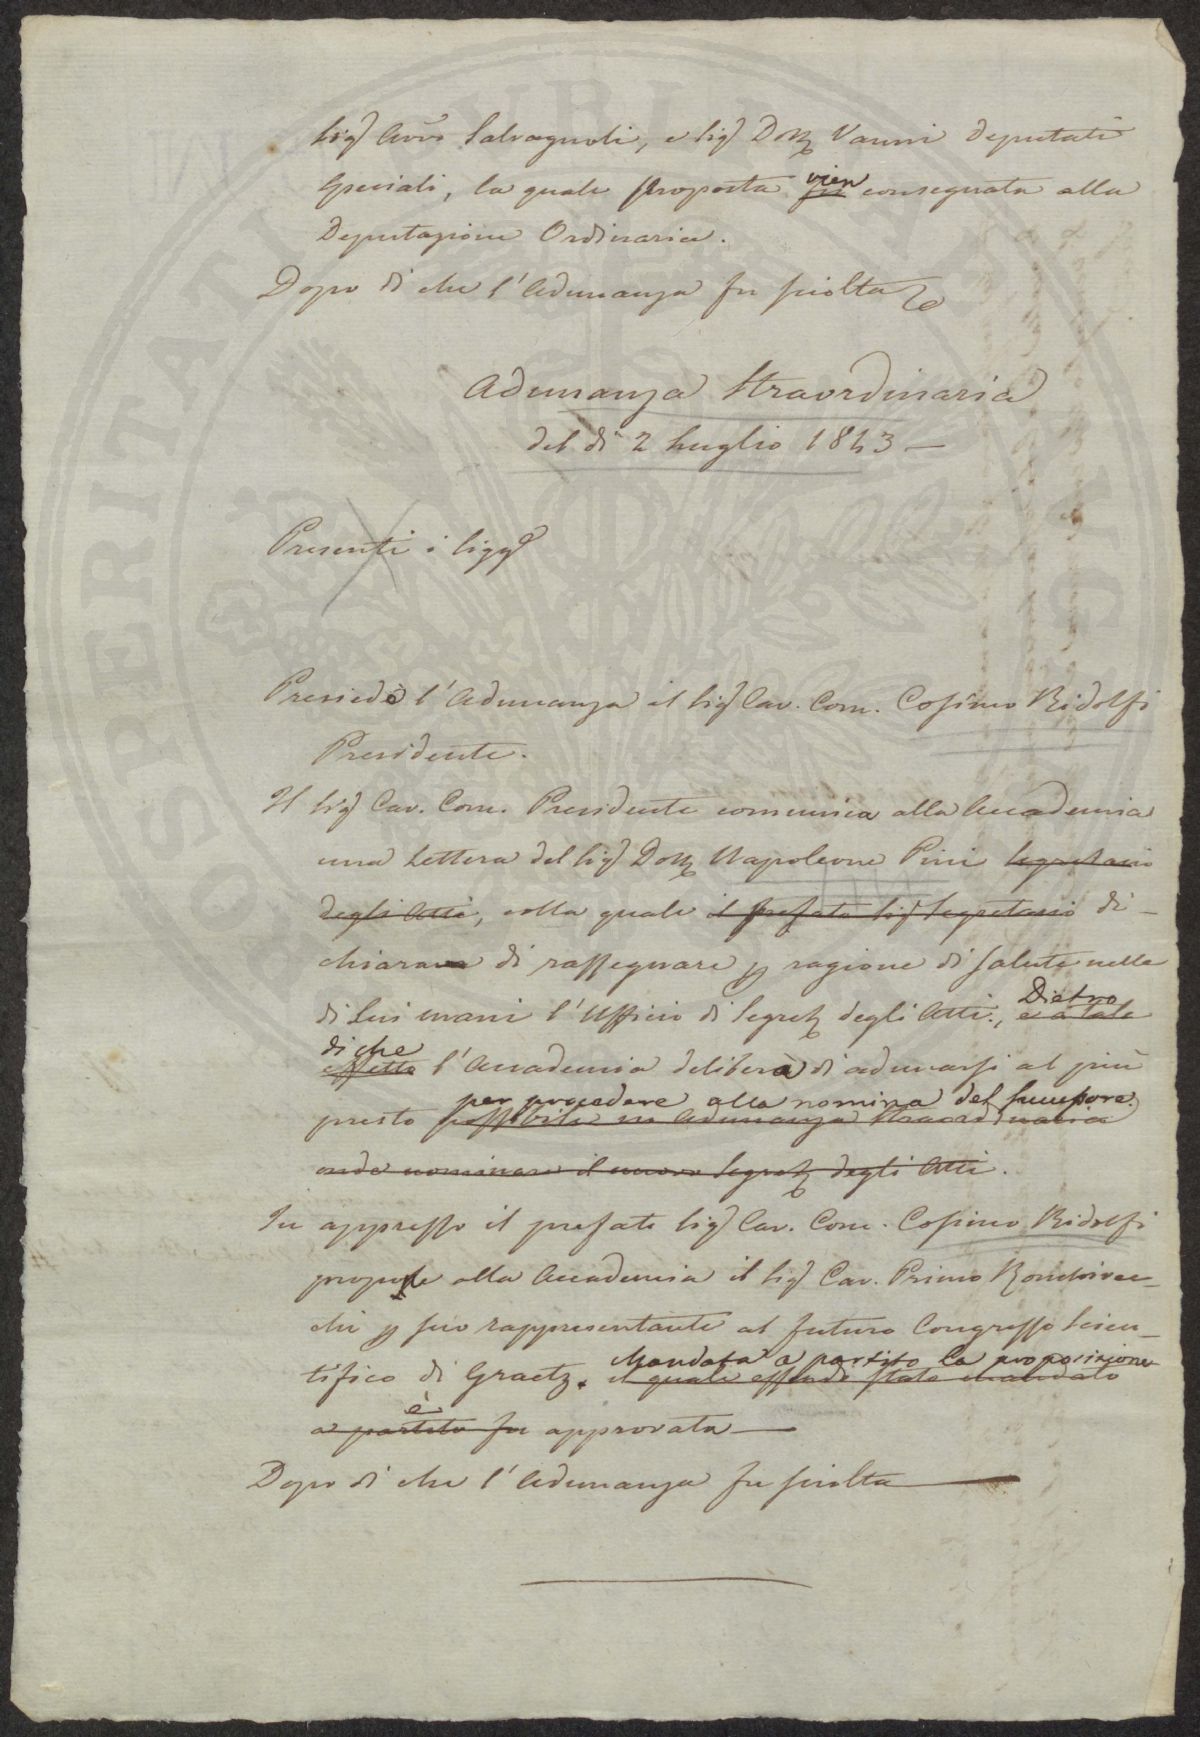 Sigr Avvo Salvagnoli, e Sigr Dottr Vanni Deputati
Speciali, la quale proposta vien fu consegnata alla
Deputazione Ordinaria.
Dopo di che l'Adunanza fu sciolta
Adunanza Straordinaria
del dì 2 Luglio 1843 —
Presenti i Sigg.ri
Presiedè l'Adunanza il Sigr Cav. Com. Cosimo Ridolfi
Presidente.
Il Sigr Cav. Com. Presidente comunica alla Accademia
una Lettera del Sigr Dottr Napoleone Pini Segretario
degli Atti, colla quale il prefato Sigr Segretario di-
chiara di rassegnare per ragione di salute nelle
di Lui mani l'Ufficio di Segretr degli Atti., Dietro e a tale
di che effetto l'Accademia deliberà di adunarsi al più
per procedere alla nomina del Successore.
presto possibile in Adunanza Straordinaria
onde nominare il nuovo Segretr degli Atti.
In appresso il prefato Sigr Cav. Com. Cosimo Ridolfi
propose alla Accademia il Sigr Cav. Primo Ronchivec-
chi per suo rappresentante al futuro Congresso Scien-
Mandata a partito la proposizione
tifico di Graetz. il quale essendo stato mandato
è
a partito fu approvata —
Dopo di che l'Adunanza fu sciolta —
PROSPERITATI PUBLICAE AUGENDAE